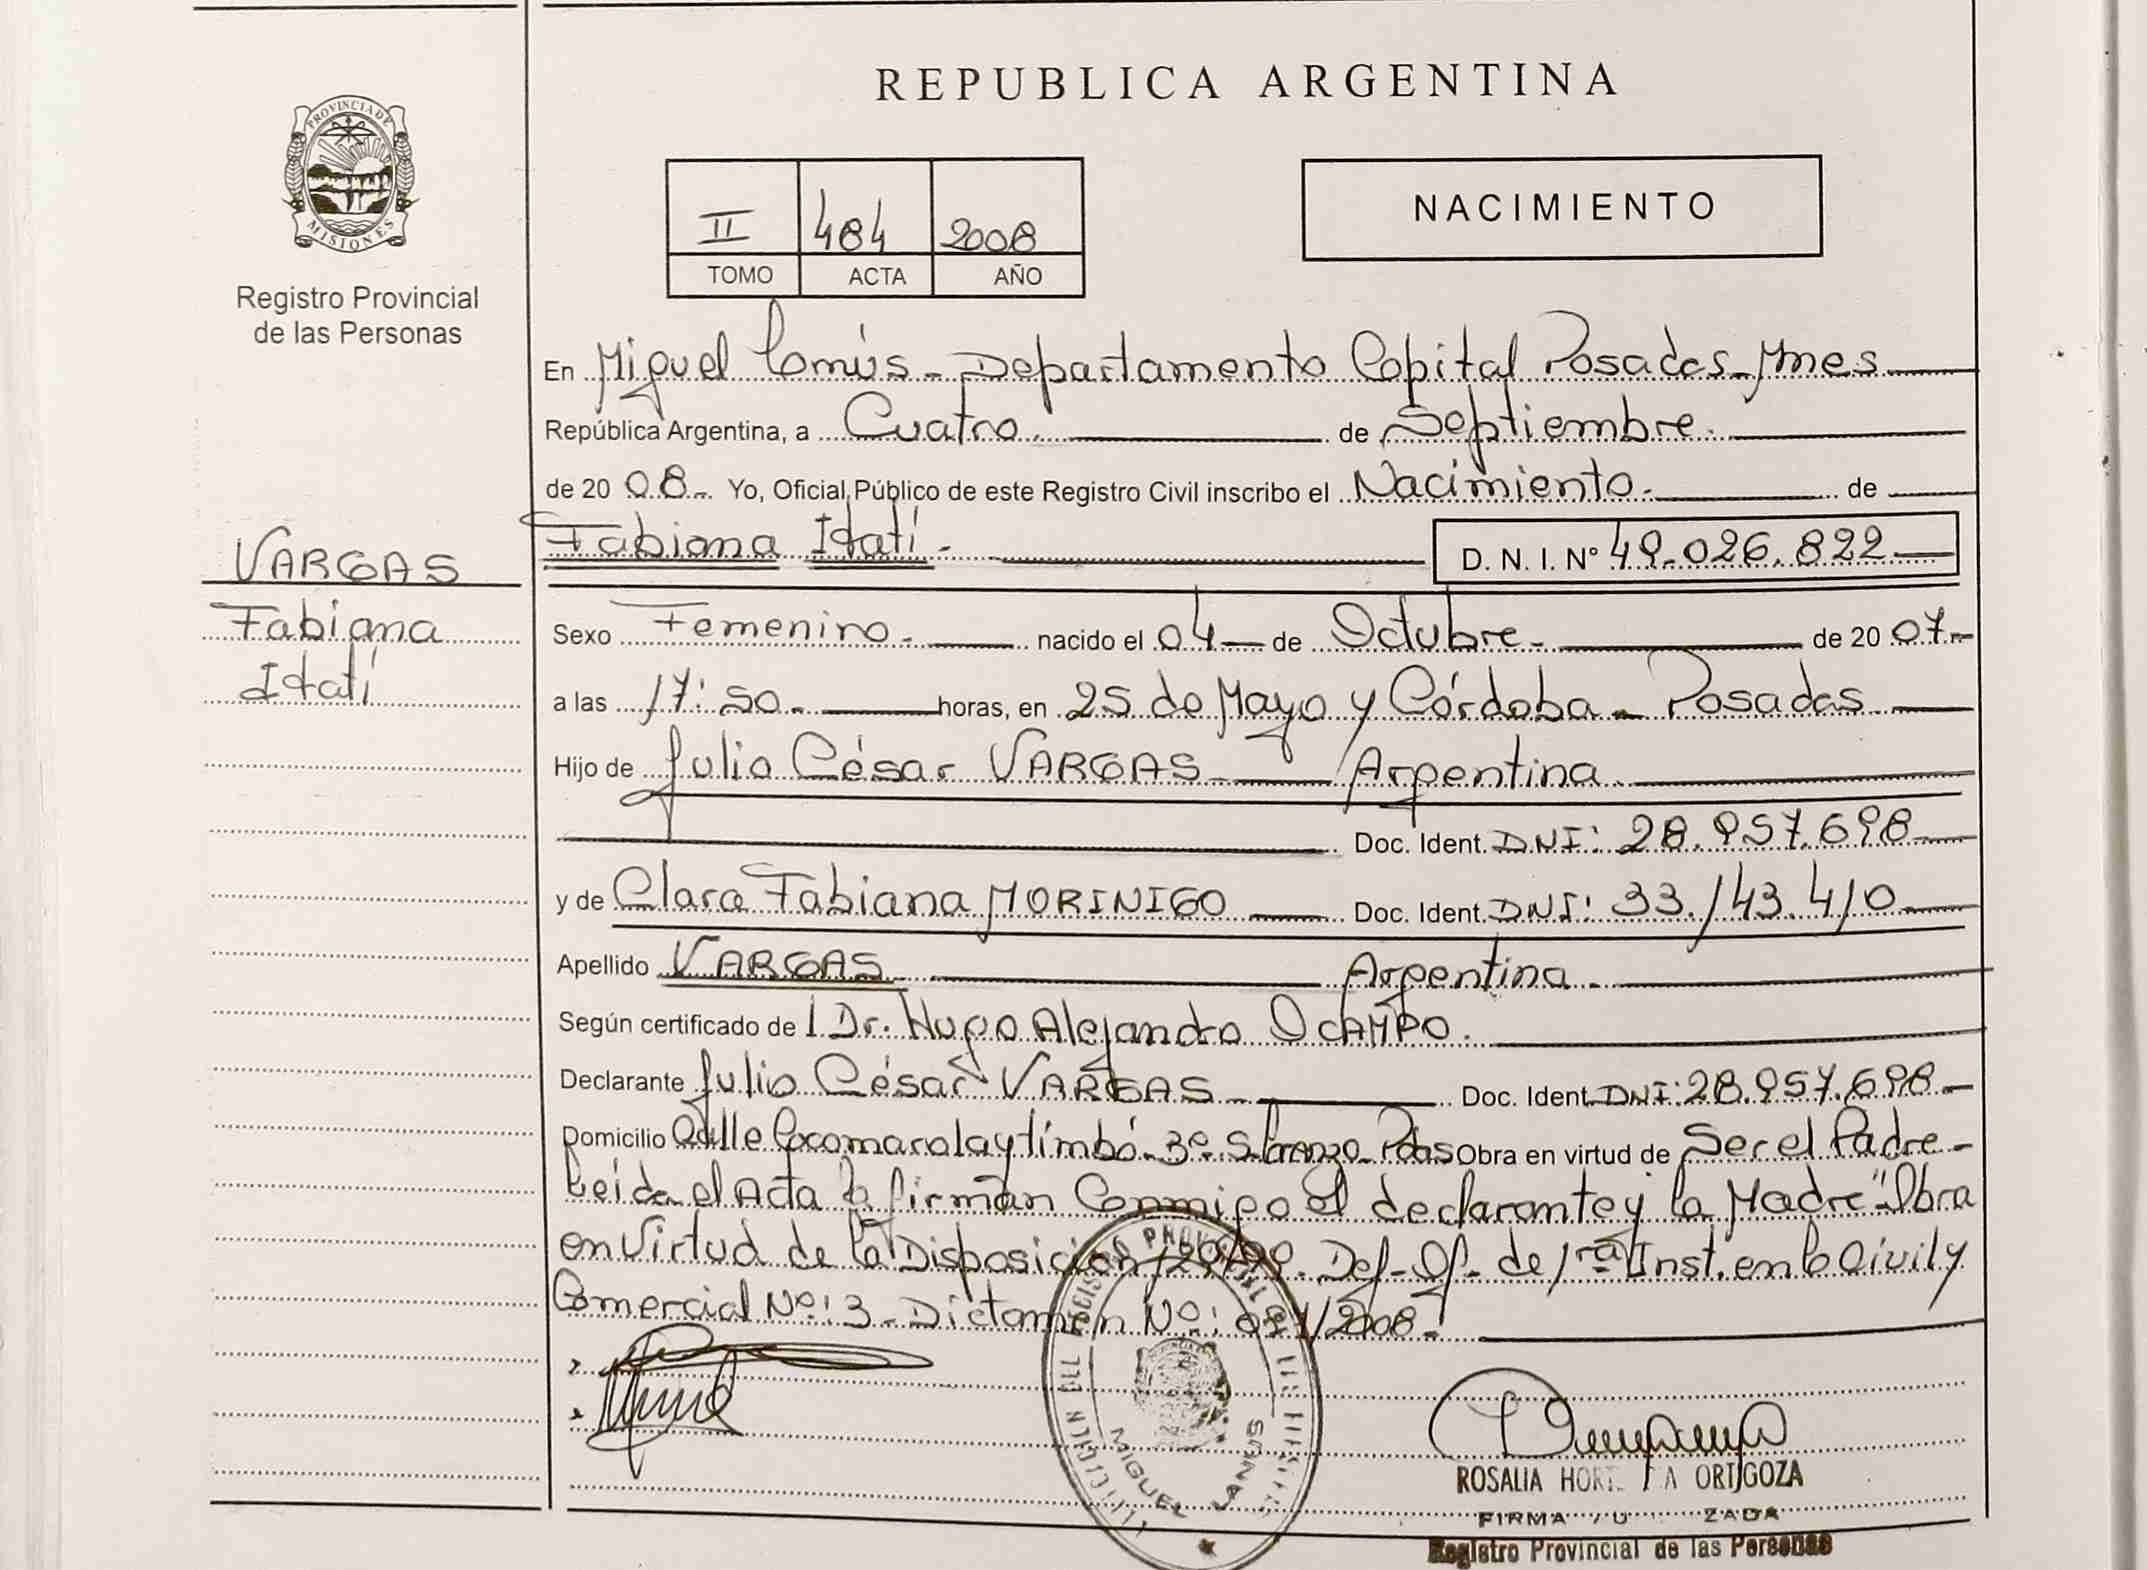 REPUBLICA ARGENTINA
PROVINCIA DE
MISIONES
Registro Provincial
de las Personas
II 484 2008
TOMO ACTA AÑO
NACIMIENTO
En Miguel Lanús - Departamento Capital Posadas - Mnes
República Argentina, a Cuatro. de Septiembre.
de 20 08.- Yo, Oficial Público de este Registro Civil inscribo el Nacimiento. de
VARGAS
Fabiana
Itatí
Fabiana Itatí - D. N. I. N° 49.026.822
Sexo Femenino. nacido el 04 de Octubre. de 20 07.-
a las 17:50. horas, en 25 de Mayo y Córdoba - Posadas
Hijo de Julio César VARGAS Argentina.
Doc. Ident. DNI: 28.957.698
y de Clara Fabiana MORINIGO Doc. Ident. DNI: 33.143.410
Apellido VARGAS. Argentina.
Según certificado de l Dr. Hugo Alejandro OCAMPO.
Declarante Julio César VARGAS Doc. Ident. DNI: 28.957.698
Domicilio Calle Cocomarola y timbó - 3° Pdas Obra en virtud de Ser el Padre -
Leída el Acta la firmán Conmigo el declarante y la Madre "Obra
en Virtud de la Disposición Def. Of. de 1ra Inst. en lo Civil y
Comercial N°: 3 - Dictamen N°: /2008.
MIGUEL LANUS
ROSALIA ORTIGOZA
FIRMA
Registro Provincial de las Personas